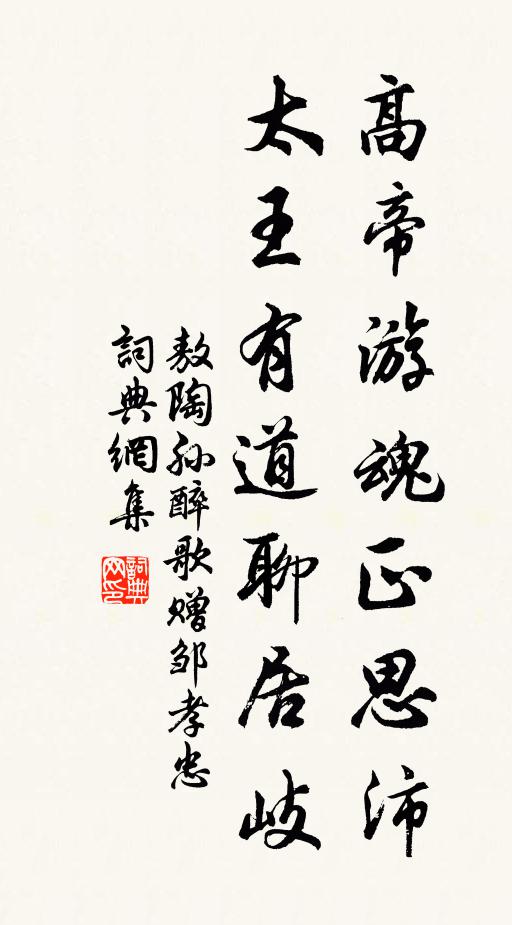 高帝游魂正思沛
太王有道聊居岐
敖陶孙醉歌赠邹孝忠
詞典網集
詞典
网印